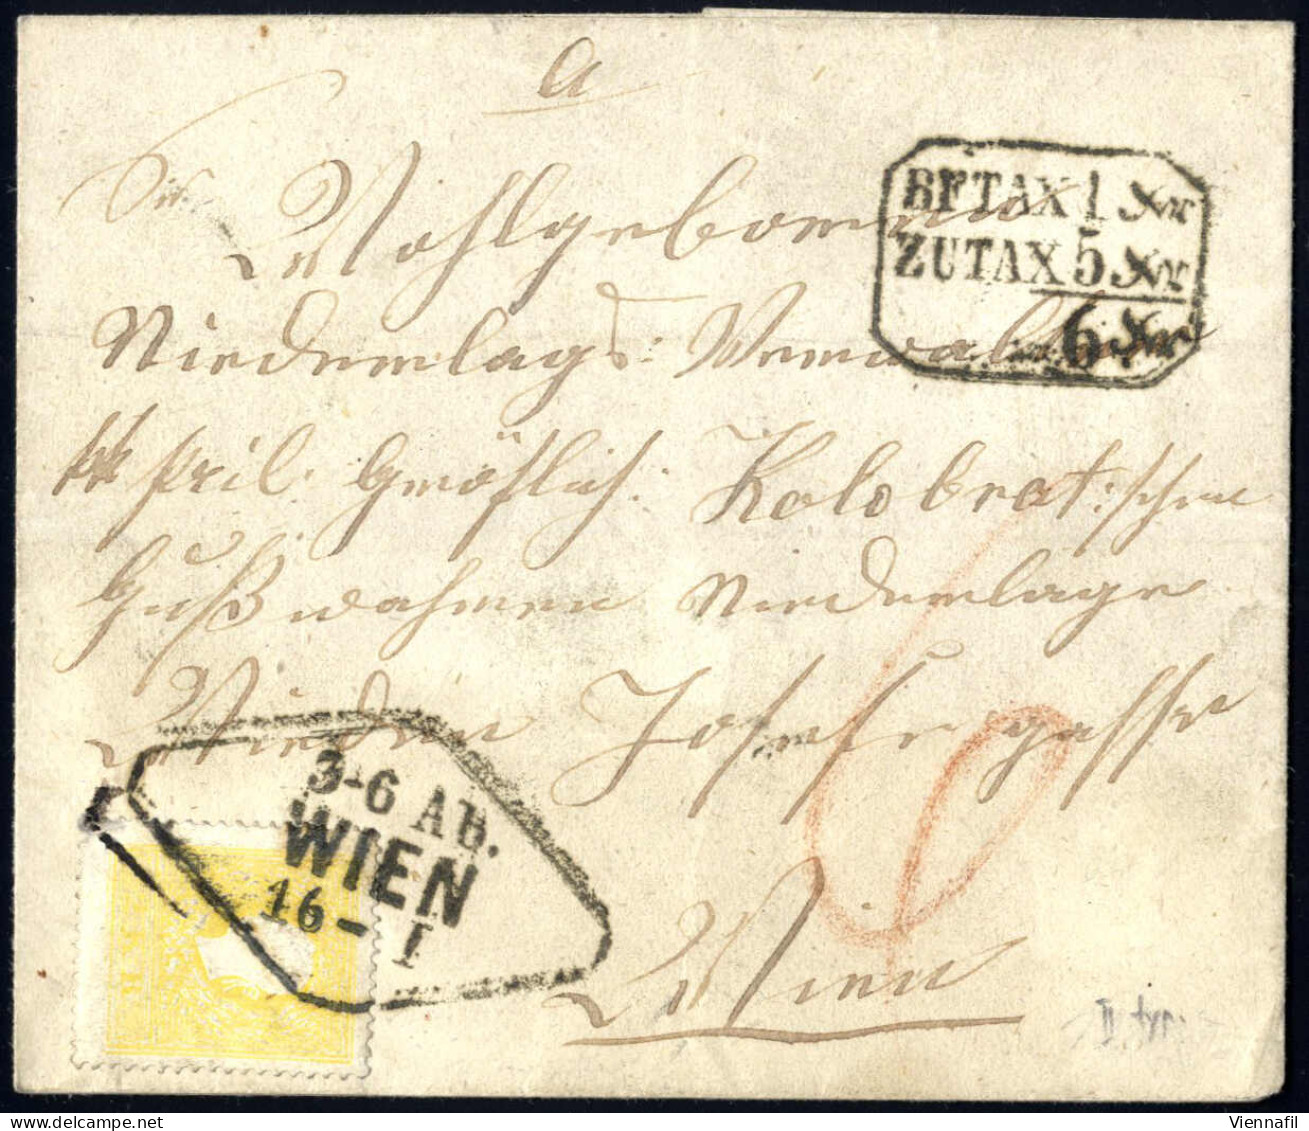 a
Sr Wohlgeboren
Niederlags: Verwalter
pril: Gräflich: Kolobrat:schen
Gußwahren Niederlage
Wieden Josefs gasse
Wien
BFTAX 1 Nkr
ZUTAX 5 Nkr
6 Nkr
3-6 AB.
WIEN
16 - I
6
KR
II. typ.
Viennafil